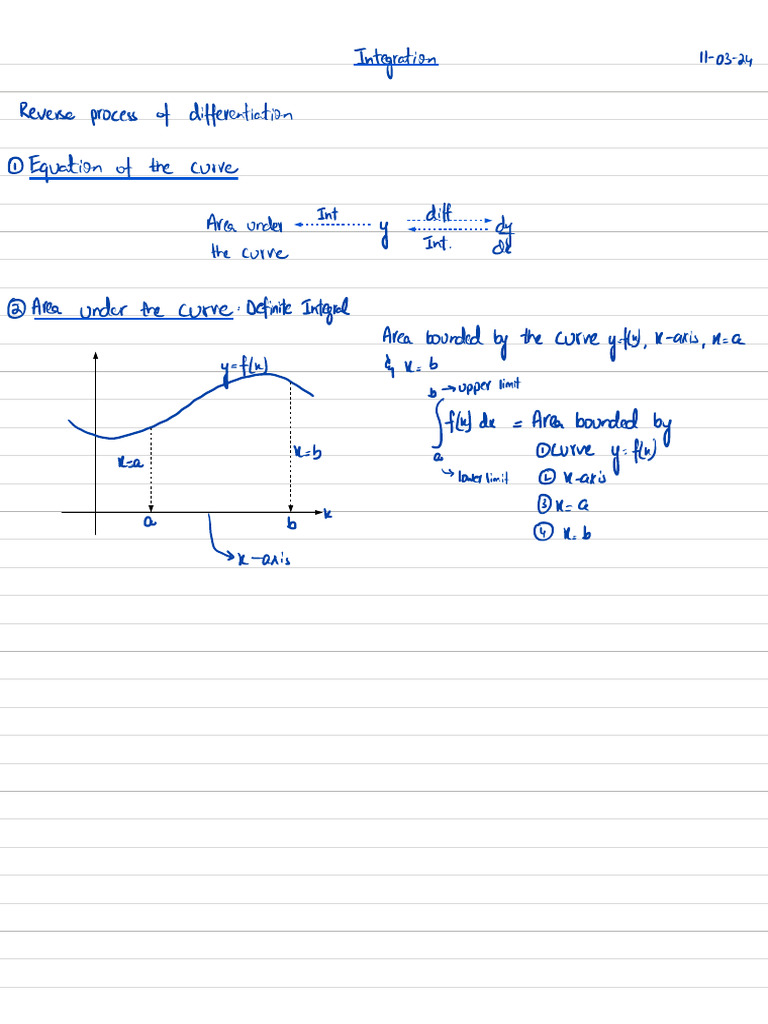 Integration
11-03-24
Reverse process of differentiation
① Equation of the curve
Area under
the curve
Int
y
diff
Int.
dy
dx
② Area under the curve : Definite Integral
y=f(x)
x=a
x=b
a
b
x
x-axis
Area bounded by the curve y=f(x), x-axis, x=a
& x=b
b → upper limit
∫ f(x) dx = Area bounded by
a
→ lower limit
① curve y=f(x)
② x-axis
③ x=a
④ x=b